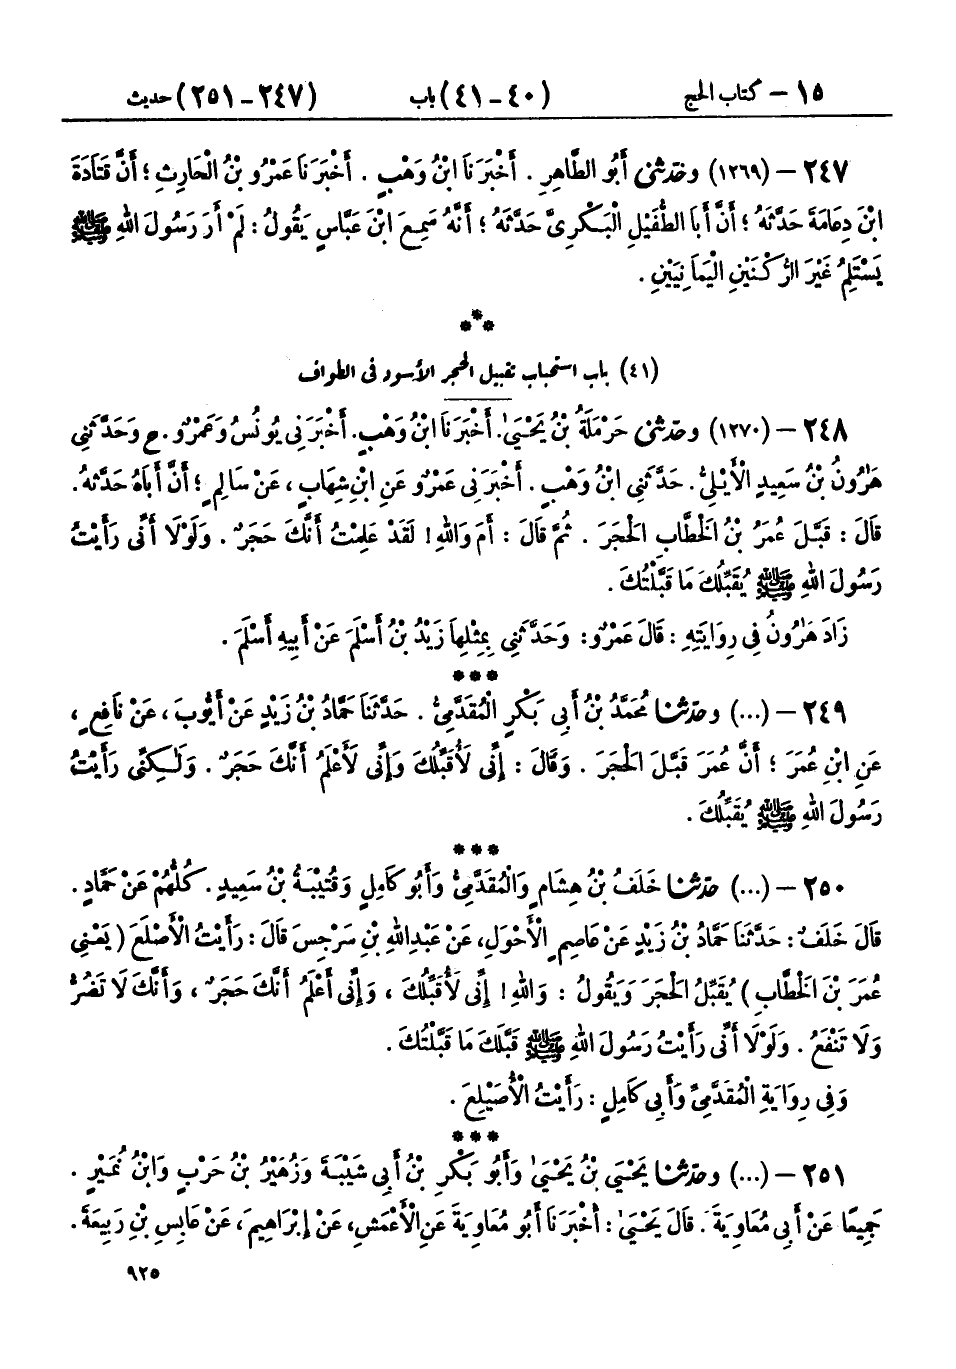 ١٥ – كتاب الحج (٤٠ – ٤١) باب (٢٤٧ – ٢٥١) حديث
٢٤٧ – (١٢٦٩) وحَدَّثَنِي أَبُو الطَّاهِرِ . أَخْبَرَنَا ابْنُ وَهْبٍ . أَخْبَرَنَا عَمْرُو بْنُ الْحَارِثِ ؛ أَنَّ قَتَادَةَ
ابْنَ دِعَامَةَ حَدَّثَهُ ؛ أَنَّ أَبَا الطُّفَيْلِ الْبَكْرِىَّ حَدَّثَهُ ؛ أَنَّهُ سَمِعَ ابْنَ عَبَّاسٍ يَقُولُ : لَمْ أَرَ رَسُولَ اللهِ ﷺ
يَسْتَلِمُ غَيْرَ الرُّكْنَيْنِ الْيَمَانِيَيْنِ .
***
(٤١) باب استحباب تقبيل الحجر الأسود فى الطواف
٢٤٨ – (١٢٧٠) وحَدَّثَنِي حَرْمَلَةُ بْنُ يَحْيَىٰ. أَخْبَرَنَا ابْنُ وَهْبٍ. أَخْبَرَنِى يُونُسُ وَعَمْرٌو. ح وَحَدَّثَنِى
هَٰرُونُ بْنُ سَعِيدٍ الْأَيْلِىُّ. حَدَّثَنِى ابْنُ وَهْبٍ . أَخْبَرَنِى عَمْرٌو عَنِ ابْنِ شِهَابٍ ، عَنْ سَالِمٍ ؛ أَنَّ أَبَاهُ حَدَّثَهُ.
قَالَ : قَبَّلَ عُمَرُ بْنُ الْخَطَّابِ الْحَجَرَ . ثُمَّ قَالَ : أَمَ وَاللهِ! لَقَدْ عَلِمْتُ أَنَّكَ حَجَرٌ . وَلَوْلَا أَنِّى رَأَيْتُ
رَسُولَ اللهِ ﷺ يُقَبِّلُكَ مَا قَبَّلْتُكَ .
زَادَ هَٰرُونُ فِى رِوَايَتِهِ : قَالَ عَمْرٌو: وَحَدَّثَنِى بِمِثْلِهَا زَيْدُ بْنُ أَسْلَمَ عَنْ أَبِيهِ أَسْلَمَ .
***
٢٤٩ – (...) وحَدَّثَنَا مُحَمَّدُ بْنُ أَبِى بَكْرٍ الْمُقَدَّمِىُّ . حَدَّثَنَا حَمَّادُ بْنُ زَيْدٍ عَنْ أَيُّوبَ ، عَنْ نَافِعٍ ،
عَنِ ابْنِ عُمَرَ ؛ أَنَّ عُمَرَ قَبَّلَ الْحَجَرَ . وَقَالَ : إِنِّى لَأُقَبِّلُكَ وَإِنِّى لَأَعْلَمُ أَنَّكَ حَجَرٌ . وَلَٰكِنِّى رَأَيْتُ
رَسُولَ اللهِ ﷺ يُقَبِّلُكَ .
***
٢٥٠ – (...) حَدَّثَنَا خَلَفُ بْنُ هِشَامٍ وَالْمُقَدَّمِىُّ وَأَبُو كَامِلٍ وَقُتَيْبَةُ بْنُ سَعِيدٍ . كُلُّهُمْ عَنْ حَمَّادٍ .
قَالَ خَلَفٌ : حَدَّثَنَا حَمَّادُ بْنُ زَيْدٍ عَنْ عَاصِمٍ الْأَحْوَلِ، عَنْ عَبْدِ اللهِ بْنِ سَرْجِسَ قَالَ : رَأَيْتُ الْأَصْلَعَ (يَعْنِى
عُمَرَ بْنَ الْخَطَّابِ) يُقَبِّلُ الْحَجَرَ وَيَقُولُ : وَاللهِ! إِنِّى لَأُقَبِّلُكَ ، وَإِنِّى أَعْلَمُ أَنَّكَ حَجَرٌ ، وَأَنَّكَ لَا تَضُرُّ
وَلَا تَنْفَعُ . وَلَوْلَا أَنِّى رَأَيْتُ رَسُولَ اللهِ ﷺ قَبَّلَكَ مَا قَبَّلْتُكَ .
وَفِى رِوَايَةِ الْمُقَدَّمِىِّ وَأَبِى كَامِلٍ : رَأَيْتُ الْأُصَيْلِعَ .
***
٢٥١ – (...) وحَدَّثَنَا يَحْيَىٰ بْنُ يَحْيَىٰ وَأَبُو بَكْرِ بْنُ أَبِى شَيْبَةَ وَزُهَيْرُ بْنُ حَرْبٍ وَابْنُ نُمَيْرٍ .
جَمِيعًا عَنْ أَبِى مُعَاوِيَةَ . قَالَ يَحْيَىٰ : أَخْبَرَنَا أَبُو مُعَاوِيَةَ عَنِ الْأَعْمَشِ، عَنْ إِبْرَاهِيمَ، عَنْ عَابِسِ بْنِ رَبِيعَةَ.
٩٢٥